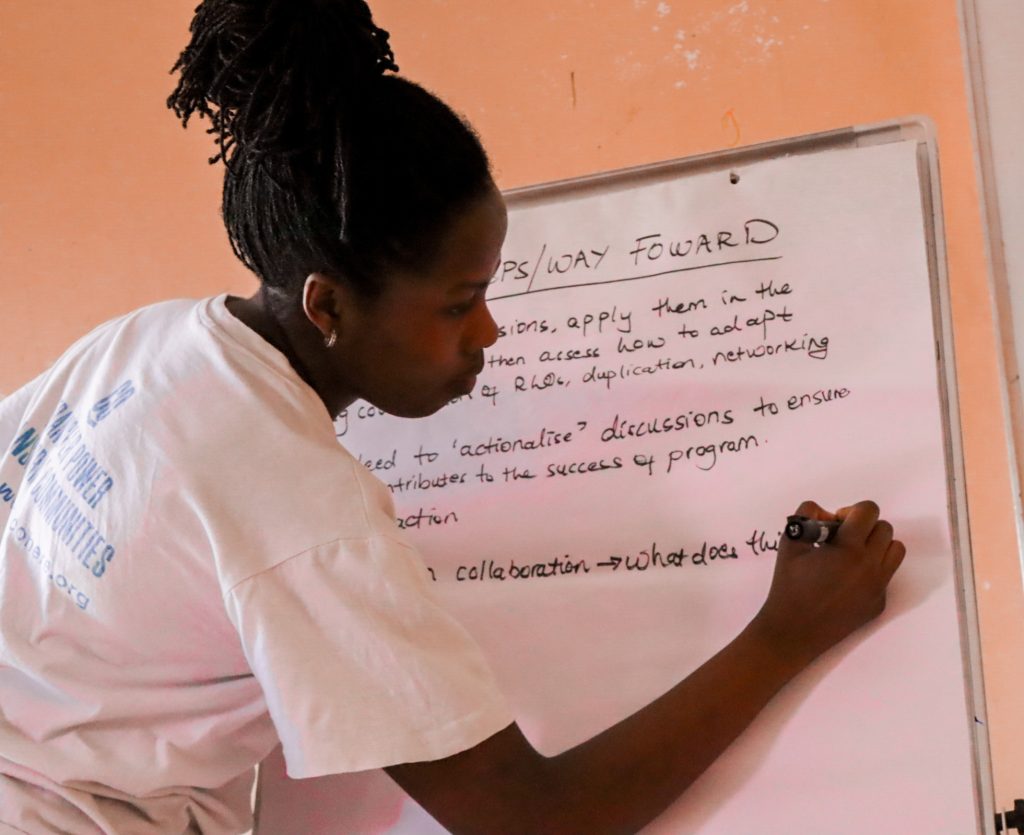 EPS/WAY FOWARD
sions, apply them in the
then assess how to adapt
of RLOs, duplication, networking
eed to 'actionalise' discussions to ensure
ntributes to the success of program.
action
n collaboration → what does thi
POWER
COMMUNITIES
.org